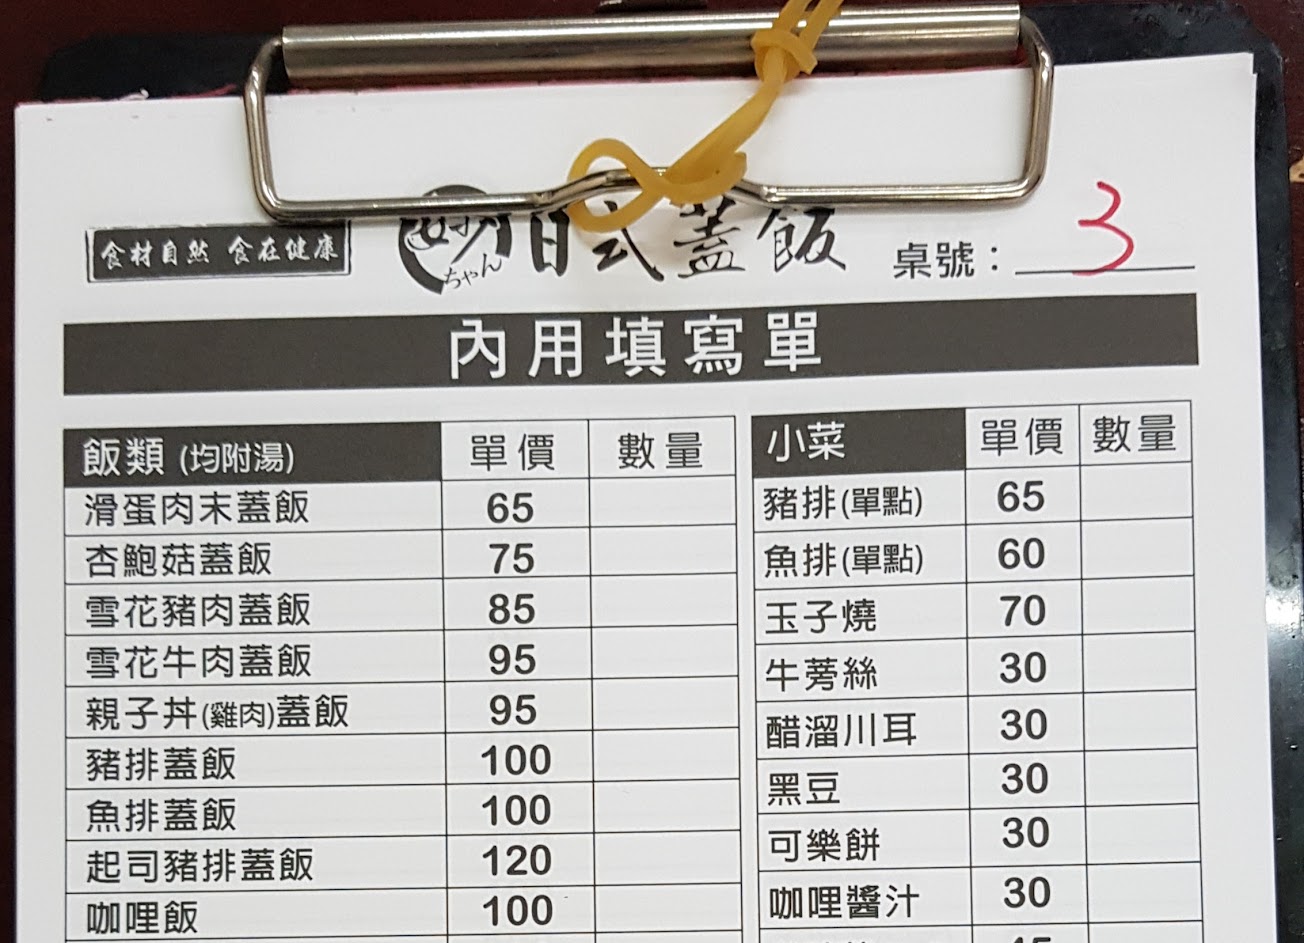 食材自然 食在健康
ちゃん
日式蓋飯
桌號：3
內用填寫單
飯類 (均附湯) 單價 數量
滑蛋肉末蓋飯 65
杏鮑菇蓋飯 75
雪花豬肉蓋飯 85
雪花牛肉蓋飯 95
親子丼(雞肉)蓋飯 95
豬排蓋飯 100
魚排蓋飯 100
起司豬排蓋飯 120
咖哩飯 100
小菜 單價 數量
豬排(單點) 65
魚排(單點) 60
玉子燒 70
牛蒡絲 30
醋溜川耳 30
黑豆 30
可樂餅 30
咖哩醬汁 30